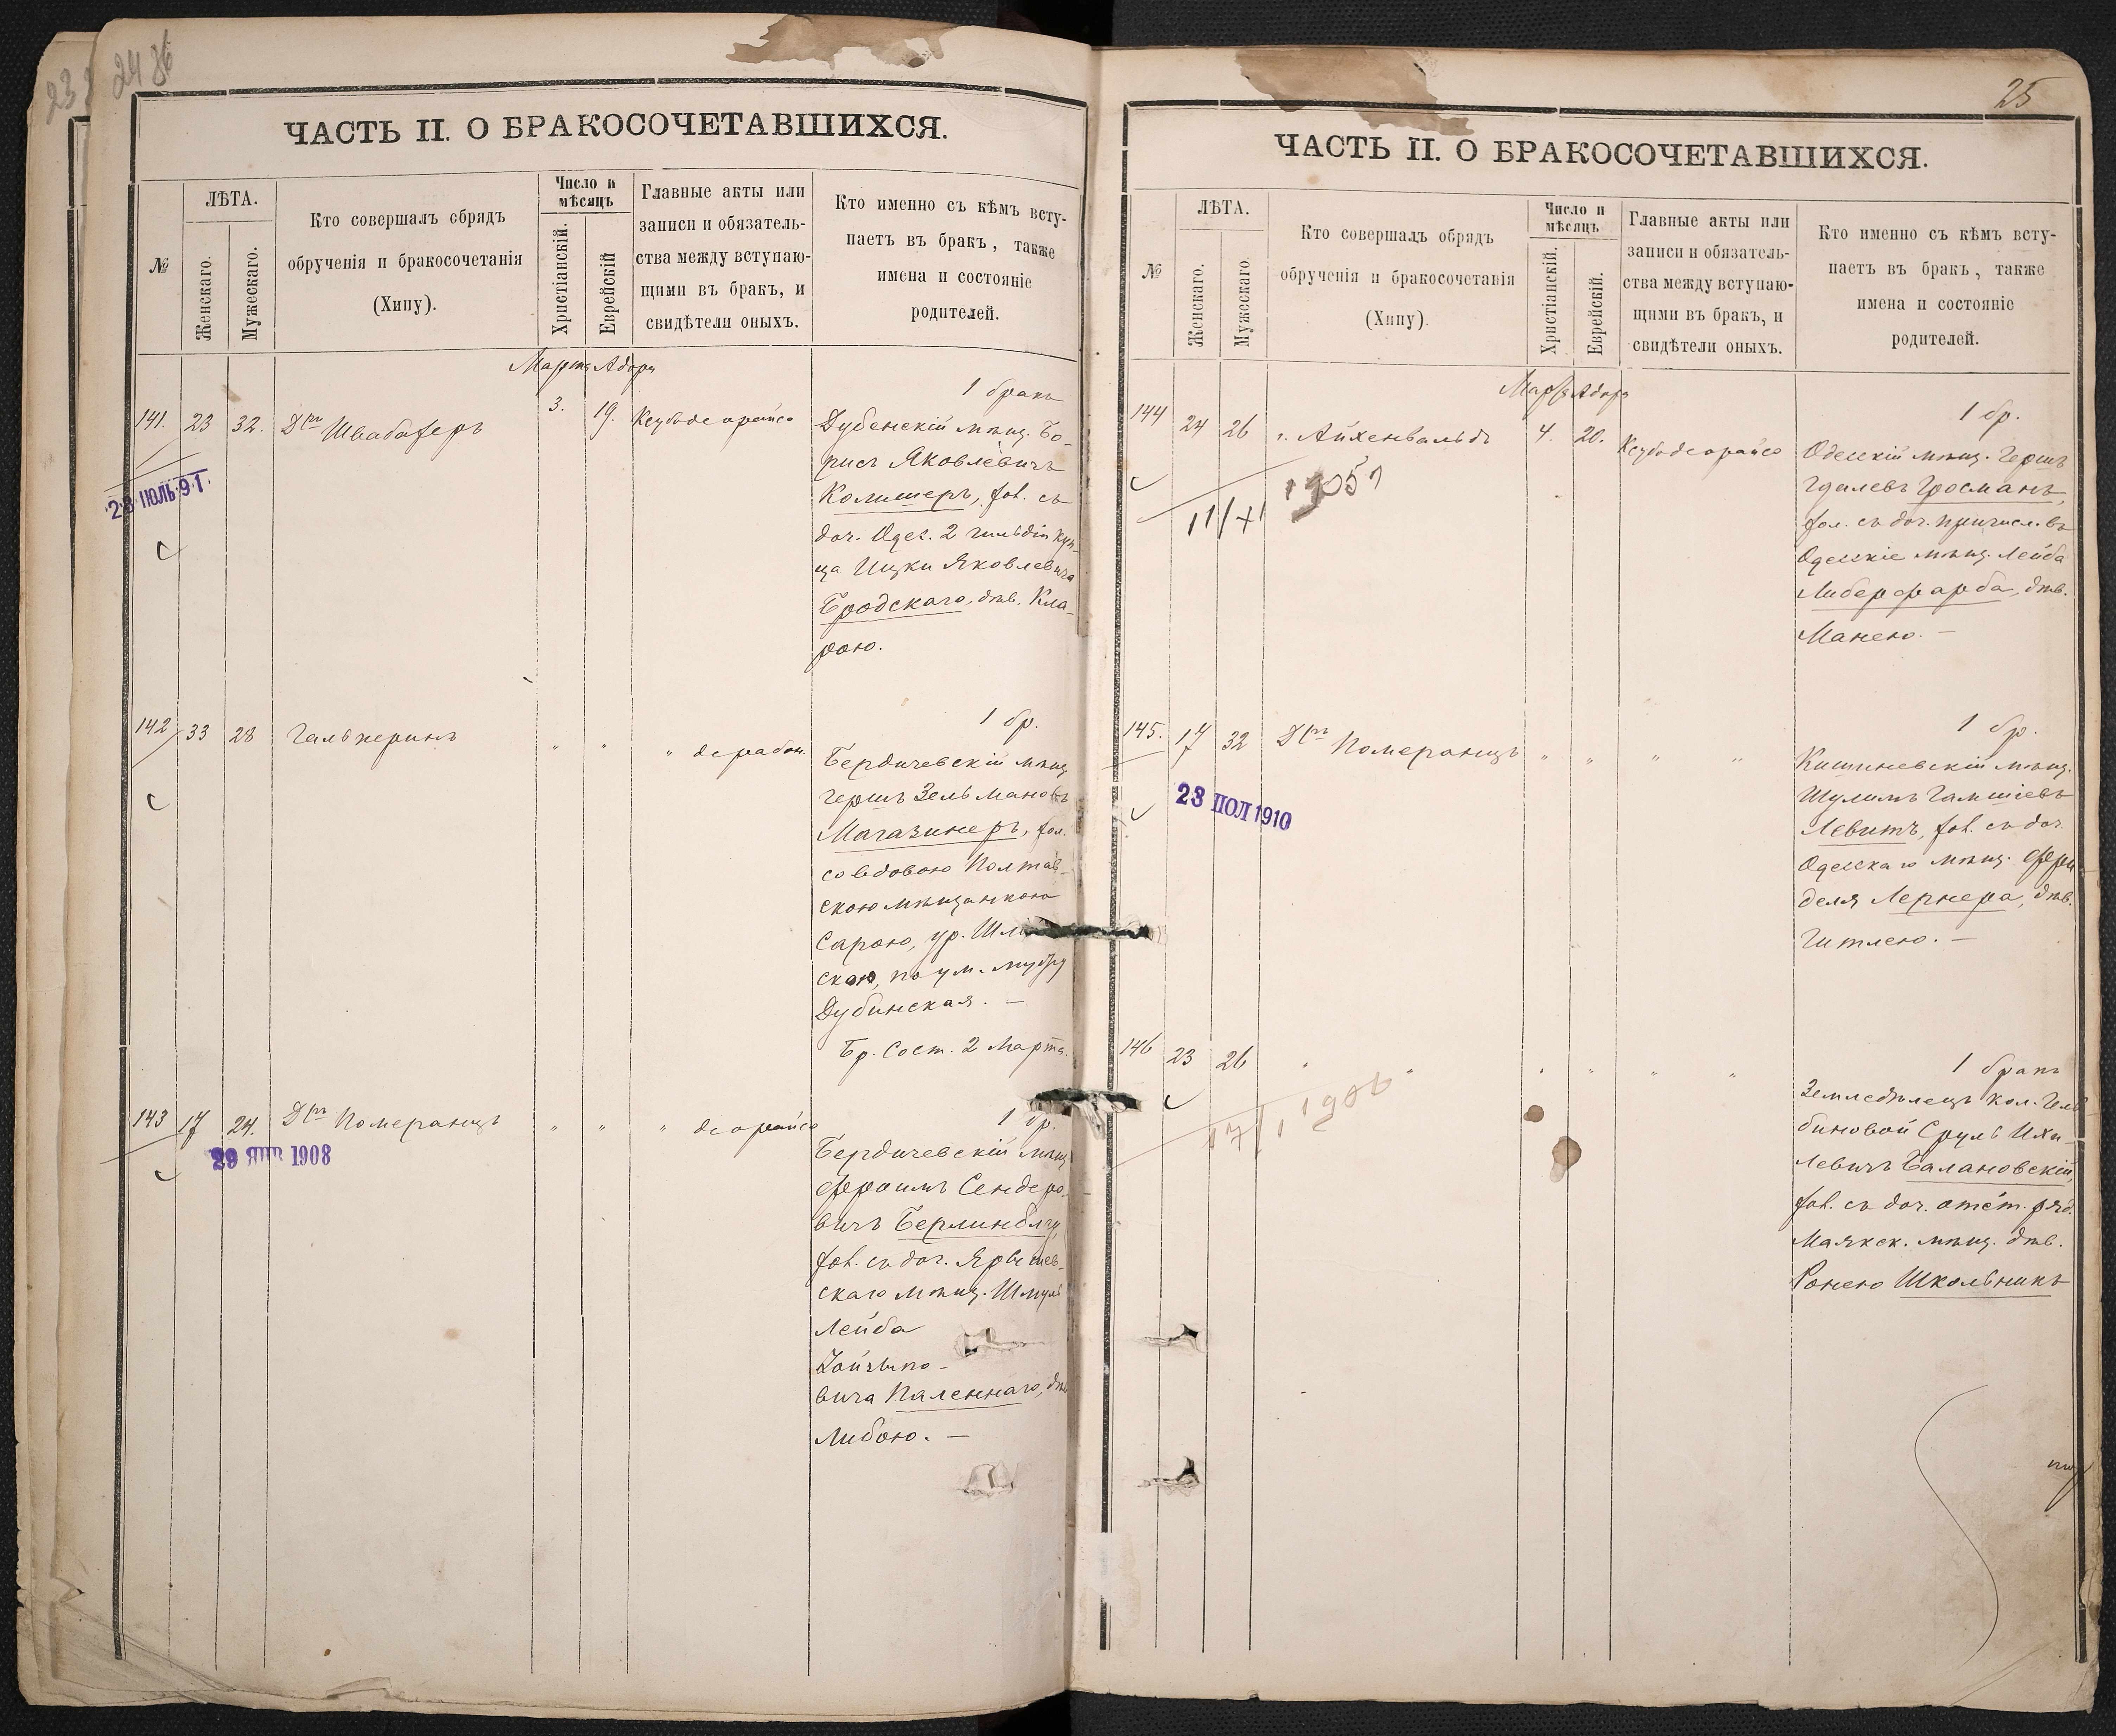 23
24 86
ЧАСТЬ II. О БРАКОСОЧЕТАВШИХСЯ.
№
ЛѢТА.
Женскаго.
Мужескаго.
Кто совершалъ обрядъ
обрученія и бракосочетанія
(Хипу).
Число и
мѣсяцъ
Христіанскій.
Еврейскій
Главные акты или
записи и обязатель-
ства между вступаю-
щими въ бракъ, и
свидѣтели оныхъ.
Кто именно съ кѣмъ всту-
паетъ въ бракъ, также
имена и состояніе
родителей.
Марта Адоръ
141. 23 32. Дръ Швабахеръ 3. 19. Ксубо деорайсо
1 бракъ
Дубенскій мѣщ. Бо-
рисъ Яковлевичъ
Колишеръ, хол. съ
доч. Одес. 2 гильдіи куп-
ца Ицки Яковлевича
Бродскаго, дѣв. Кла-
рою.
23 ІЮЛЬ 91.
142 33 28 Гальперинъ " " " дерабон.
1 бр.
Бердичевскій мѣщ.
Гершъ Зельмановъ
Магазинеръ, хол.
со вдовою Полтав-
скою мѣщанкою
Сарою, ур.
скою, по ум. мужу
Дубинская. —
Бр. сост. 2 Марта.
143 17 24. Дръ Померанцъ " " " деорайсо
1 бр.
Бердичевскій мѣщ.
Фроимъ Сендеро-
вичъ Берлинблау,
хол. съ доч. Ярышев-
скаго мѣщ. Шмуль
Лейба
вича Паленнаго, дѣв.
Либою. —
29 ЯНВ 1908
25
ЧАСТЬ II. О БРАКОСОЧЕТАВШИХСЯ.
№
ЛѢТА.
Женскаго.
Мужескаго.
Кто совершалъ обрядъ
обрученія и бракосочетанія
(Хипу).
Число и
мѣсяцъ
Христіанскій.
Еврейскій.
Главные акты или
записи и обязатель-
ства между вступаю-
щими въ бракъ, и
свидѣтели оныхъ.
Кто именно съ кѣмъ всту-
паетъ въ бракъ, также
имена и состояніе
родителей.
Марта Адоръ
144 24 26 г. Айхенвальдъ 4. 20. Ксубо деорайсо
1 бр.
Одесскій мѣщ. Гершъ
Гдалевъ Гросманъ,
хол. съ доч. причисл. въ
Одесскіе мѣщ. Лейба
Либерфарба, дѣв.
Манею. —
11/XI 1905
145. 17 32 Дръ Померанцъ " " " "
1 бр.
Кишиневскій мѣщ.
Шулимъ Гамшіевъ
Левитъ, хол. съ доч.
Одесскаго мѣщ. Фрой-
деля Лернера, дѣв.
Гитлею. —
23 ПОЛ 1910
146 23 26 " " " " " "
1 бракъ
Земледѣлецъ кол.
биновой Сруль Ихи-
левичъ Балановскій,
хол. съ доч. отст. ряд.
Маякск. мѣщ. дѣв.
Ронею Школьникъ
17/I 1906